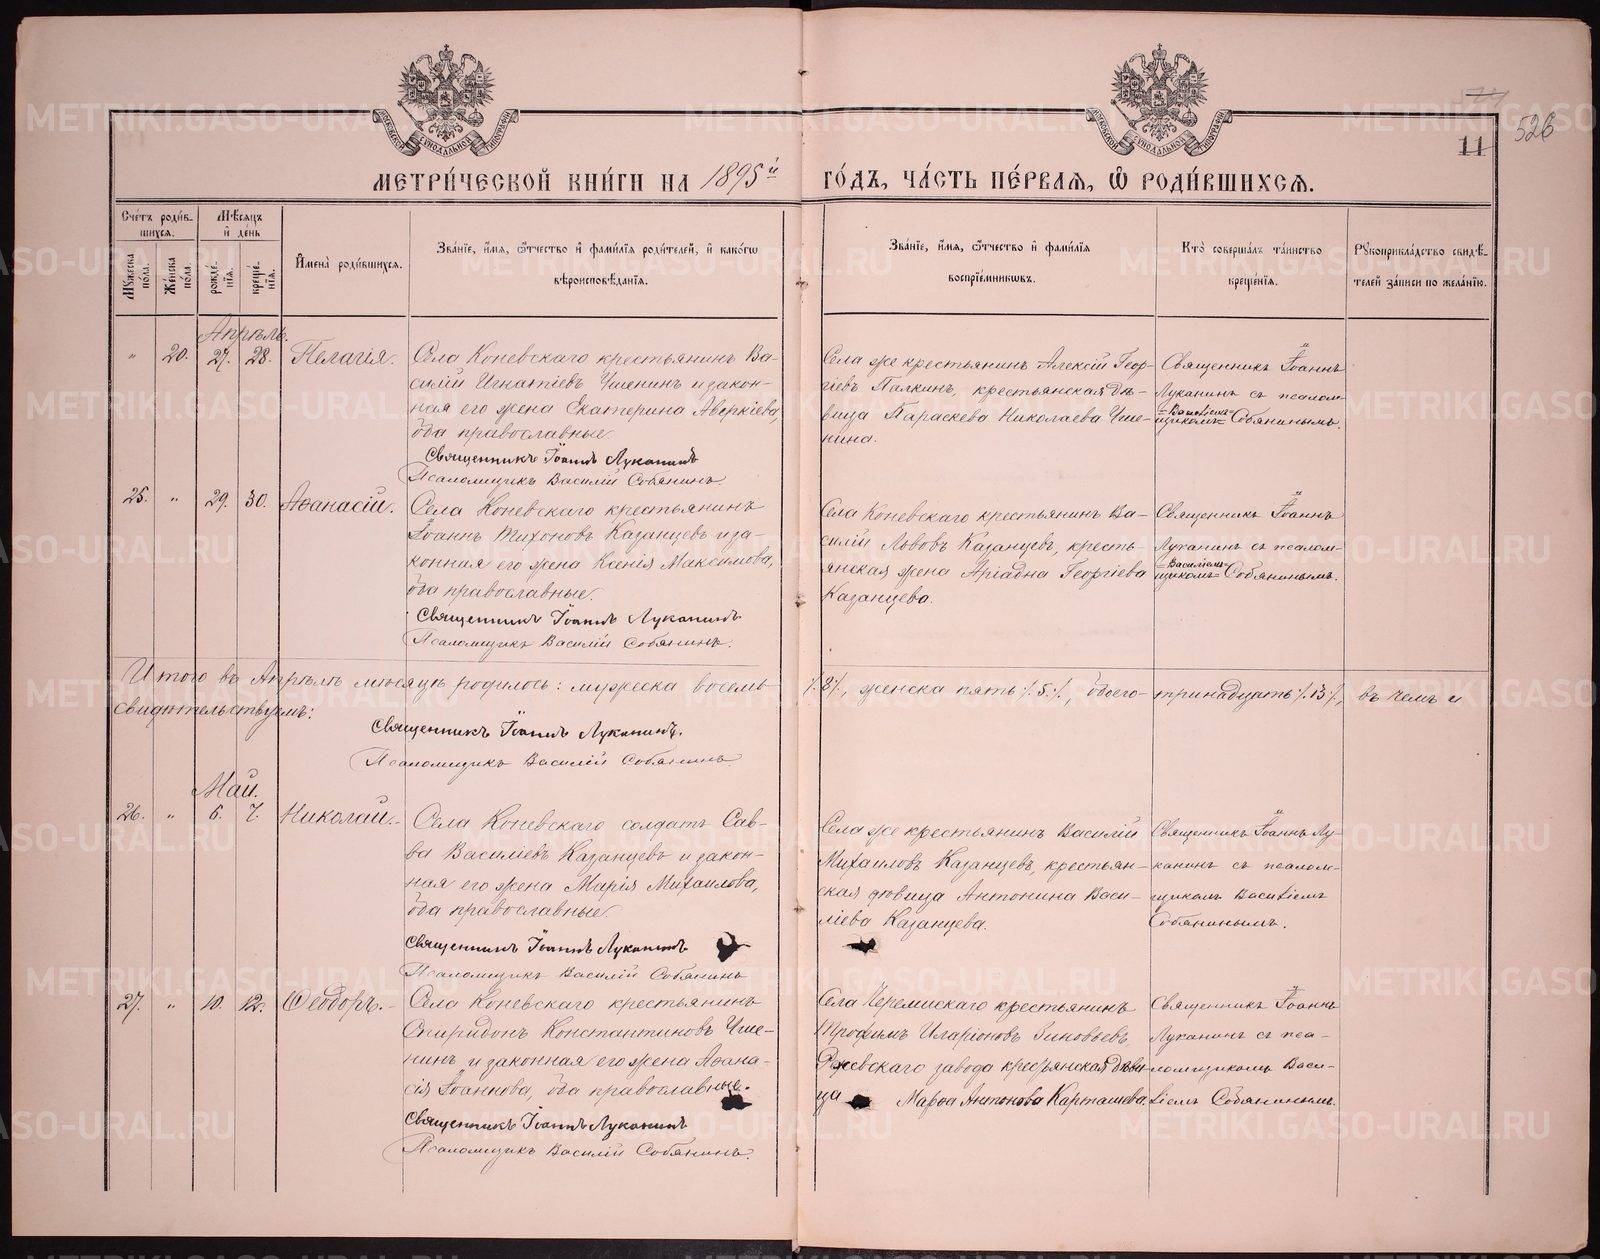 МЕТРИ́ЧЕСКОЙ КНИ́ГИ НА 1895й ГО́ДЪ, ЧА́СТЬ ПЕ́РВАЯ, Ѽ РОДИ́ВШИХСЯ.
526
11
Сче́тъ роди́вшихся.
Му́жеска по́ла.
Же́нска по́ла.
Мѣ́сяцъ и҆ де́нь
рожде́нїѧ.
креще́нїѧ.
И҆мена̀ роди́вшихсѧ.
Зва́нїе, и҆́мѧ, ѻ҆́тчество и҆ фами́лїѧ роди́телей, и҆ како́гѡ вѣроисповѣ́данїѧ.
Зва́нїе, и҆́мѧ, ѻ҆́тчество и҆ фами́лїѧ воспрїе́мникѡвъ.
Кто̀ соверша́лъ та́инство креще́нїѧ.
Рꙋкоприкла́дство свидѣ́телей за́писи по жела́нїю.
Апрѣль.
„ 20. 27. 28. Пелагія.
Села Коневскаго крестьянинъ Ва-
силій Игнатіевъ Ушенинъ и закон-
ная его жена Екатерина Аверкіева,
оба православные.
Священникъ Іоаннъ Луканинъ
Псаломщикъ Василій Собянинъ.
Села же крестьянинъ Алексій Геор-
гіевъ Палкинъ, крестьянская дѣ-
вица Параскева Николаева Уше-
нина.
Священникъ Іоаннъ
Луканинъ съ псалом-
щикомъ Василіемъ Собянинымъ.
25. „ 29. 30. Аѳанасій.
Села Коневскаго крестьянинъ
Іоаннъ Тихоновъ Казанцевъ и за-
конная его жена Ксенія Максимова,
оба православные.
Священникъ Іоаннъ Луканинъ
Псаломщикъ Василій Собянинъ.
Села Коневскаго крестьянинъ Ва-
силій Львовъ Казанцевъ, кресть-
янская жена Аріадна Георгіева
Казанцева.
Священникъ Іоаннъ
Луканинъ съ псалом-
щикомъ Василіемъ Собянинымъ.
Итого въ Апрѣлѣ мѣсяцѣ родилось: мужеска восемь /.8/., женска пять /.5./., обоего тринадцать /.13/., въ чемъ и
свидѣтельствуемъ:
Священникъ Іоаннъ Луканинъ.
Псаломщикъ Василій Собянинъ.
Май.
26. „ 6. 7. Николай.
Села Коневскаго солдатъ Сав-
ва Василіевъ Казанцевъ и закон-
ная его жена Марія Михаилова,
оба православные.
Священникъ Іоаннъ Луканинъ
Псаломщикъ Василій Собянинъ
Села же крестьянинъ Василій
Михаиловъ Казанцевъ, крестьян-
ская дѣвица Антонина Васи-
ліева Казанцева.
Священникъ Іоаннъ Лу-
канинъ съ псалом-
щикомъ Василіемъ
Собянинымъ.
27. „ 10. 12. Ѳеодоръ.
Села Коневскаго крестьянинъ
Спиридонъ Константиновъ Уше-
нинъ и законная его жена Аѳана-
сія Іоаннова, оба православные.
Священникъ Іоаннъ Луканинъ
Псаломщикъ Василій Собянинъ.
Села Черемисскаго крестьянинъ
Трофимъ Иларіоновъ Зиновьевъ,
Режевскаго завода крестьянская дѣви-
ца Марѳа Антонова Карташева.
Священникъ Іоаннъ
Луканинъ съ пса-
ломщикомъ Васи-
ліемъ Собянинымъ.
METRIKI.GASO-URAL.RU